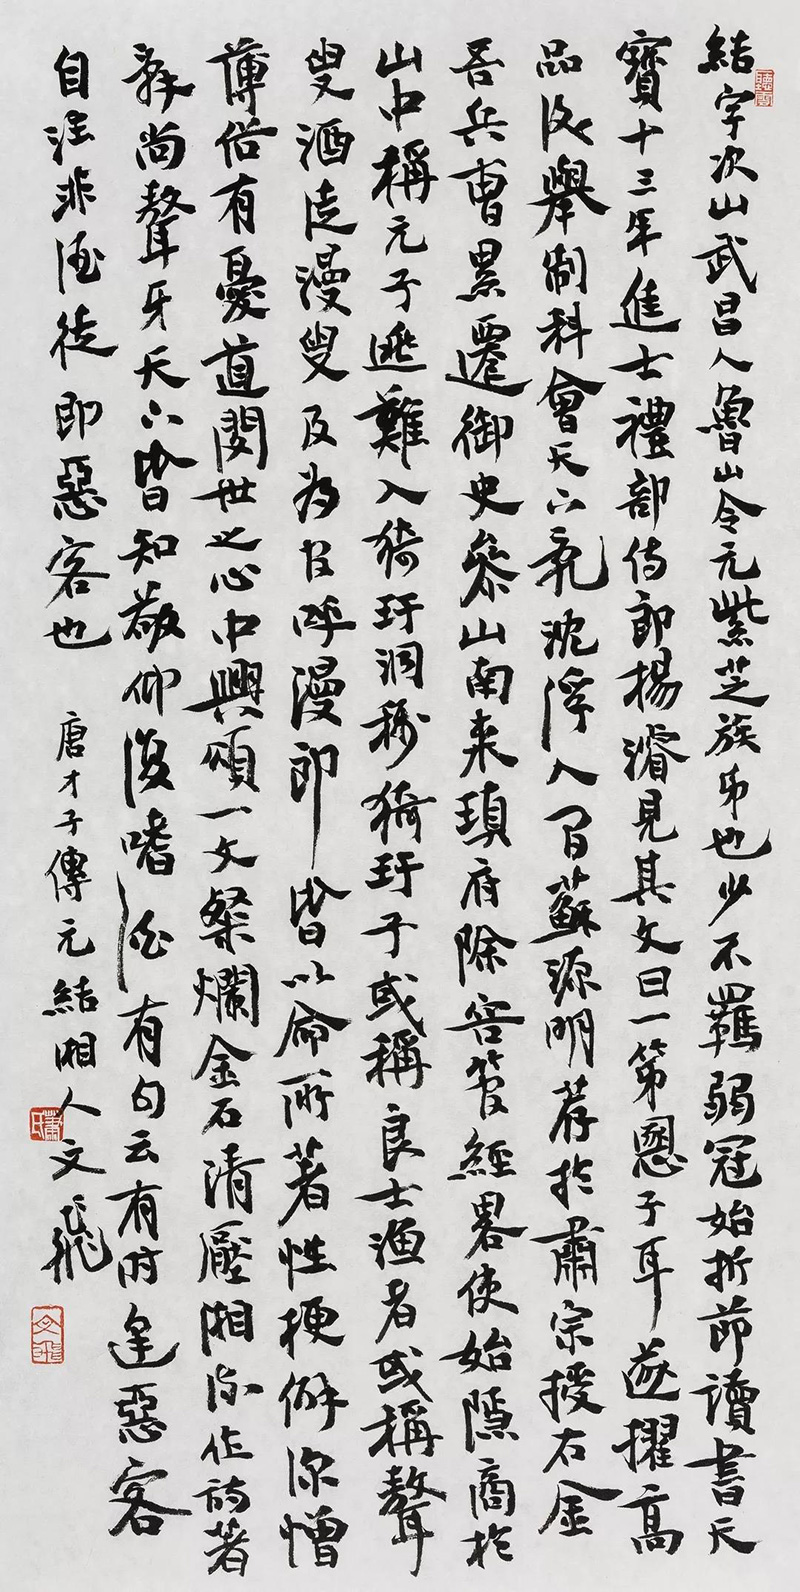 結字次山武昌人魯山令元紫芝族弟也少不羈弱冠始折節讀書天
寶十三年進士禮部侍郎楊濬見其文曰一第慁子耳遂擢高
品後舉制科會天下亂沈浮人間蘇源明荐於肅宗授右金
吾兵曹累遷御史參山南來瑱府除容管經畧使始隱商於
山中稱元子逃難入猗玗洞稱猗玗子或稱良士漁者或稱聱
叟酒徒漫叟及為官呼漫郎皆以命所著性梗僻深憎
薄俗有憂道閔世之心中興頌一文粲爛金石清壓湘流作詩著
辭尚聱牙天下皆知敬仰復嗜酒有句云有時逢惡客
自注非酒徒即惡客也
唐才子傳元結湘人文飛
文飛